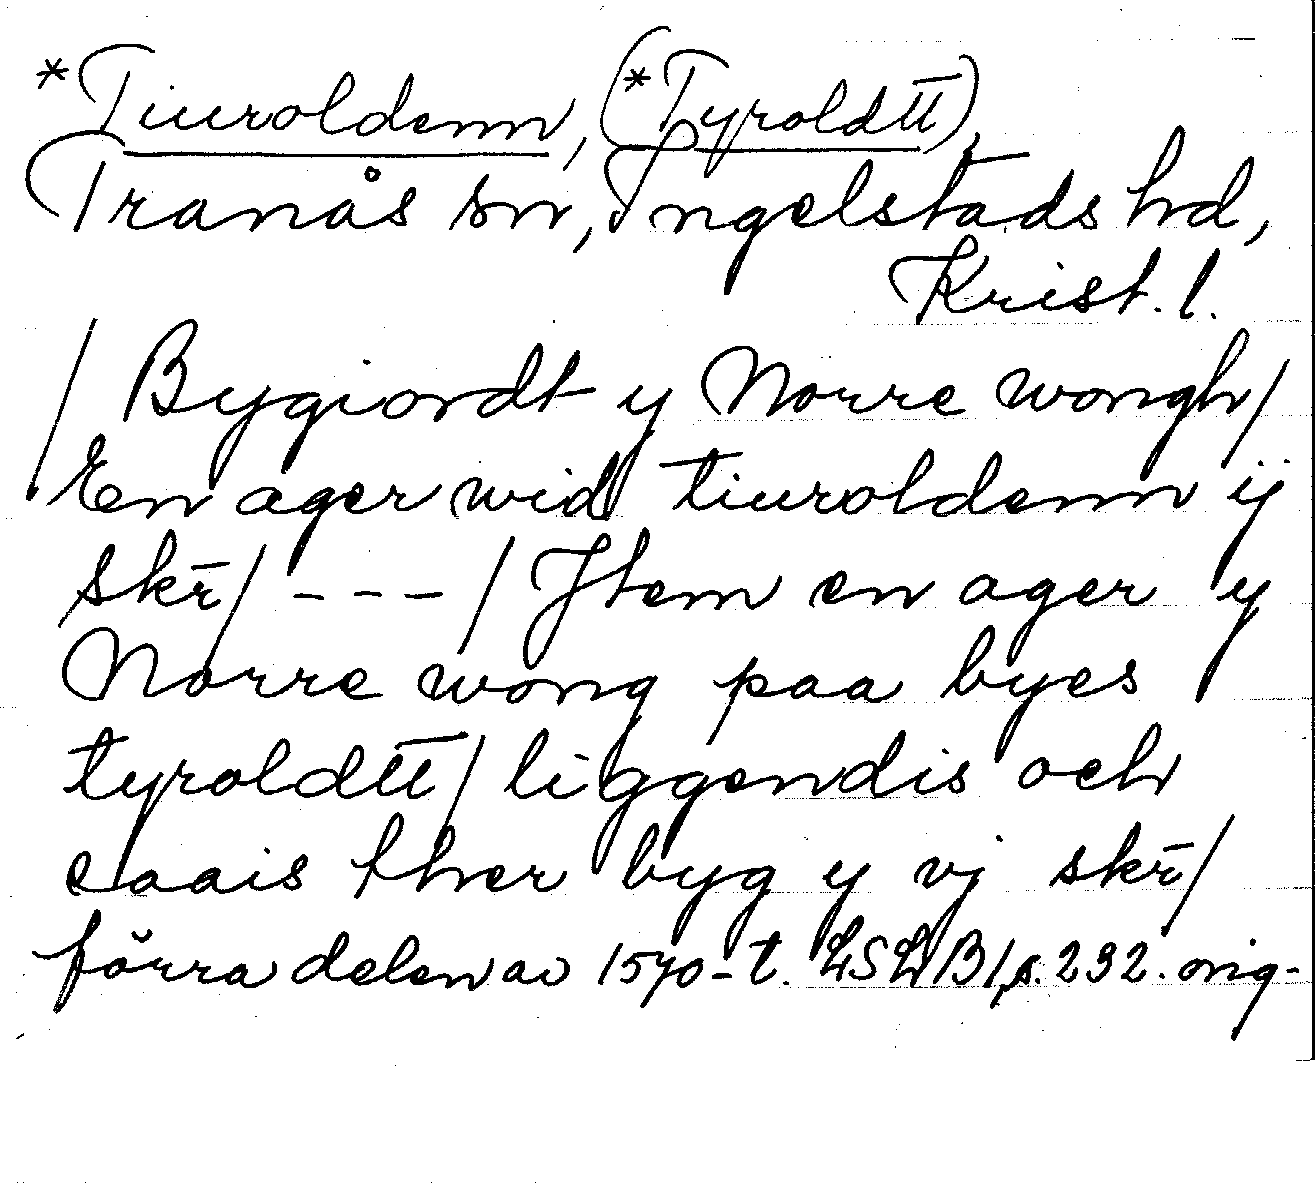 *Tiuroldenn, (*Tyroldtt),
Tranås sn, Ingelstads hd,
Krist. l.
/ Bygiordt y Norre wongh/
En ager wid tiuroldenn ij
skr̄/ - - - / Jtem en ager y
Norre wong paa byes
tyroldt̄t̄/ liggendis och
saais ther byg y vj skr̄/
förra delen av 1570-t. LSLB1, s. 232. orig-